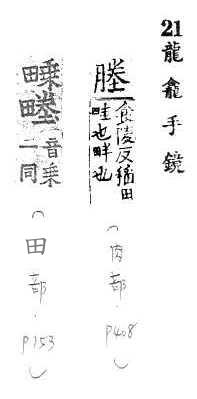 21 龍龕手鏡
塍
食陵反稲田
畦也畔也
(肉部.p408)
畻
音乗
二同
(田部.p153)